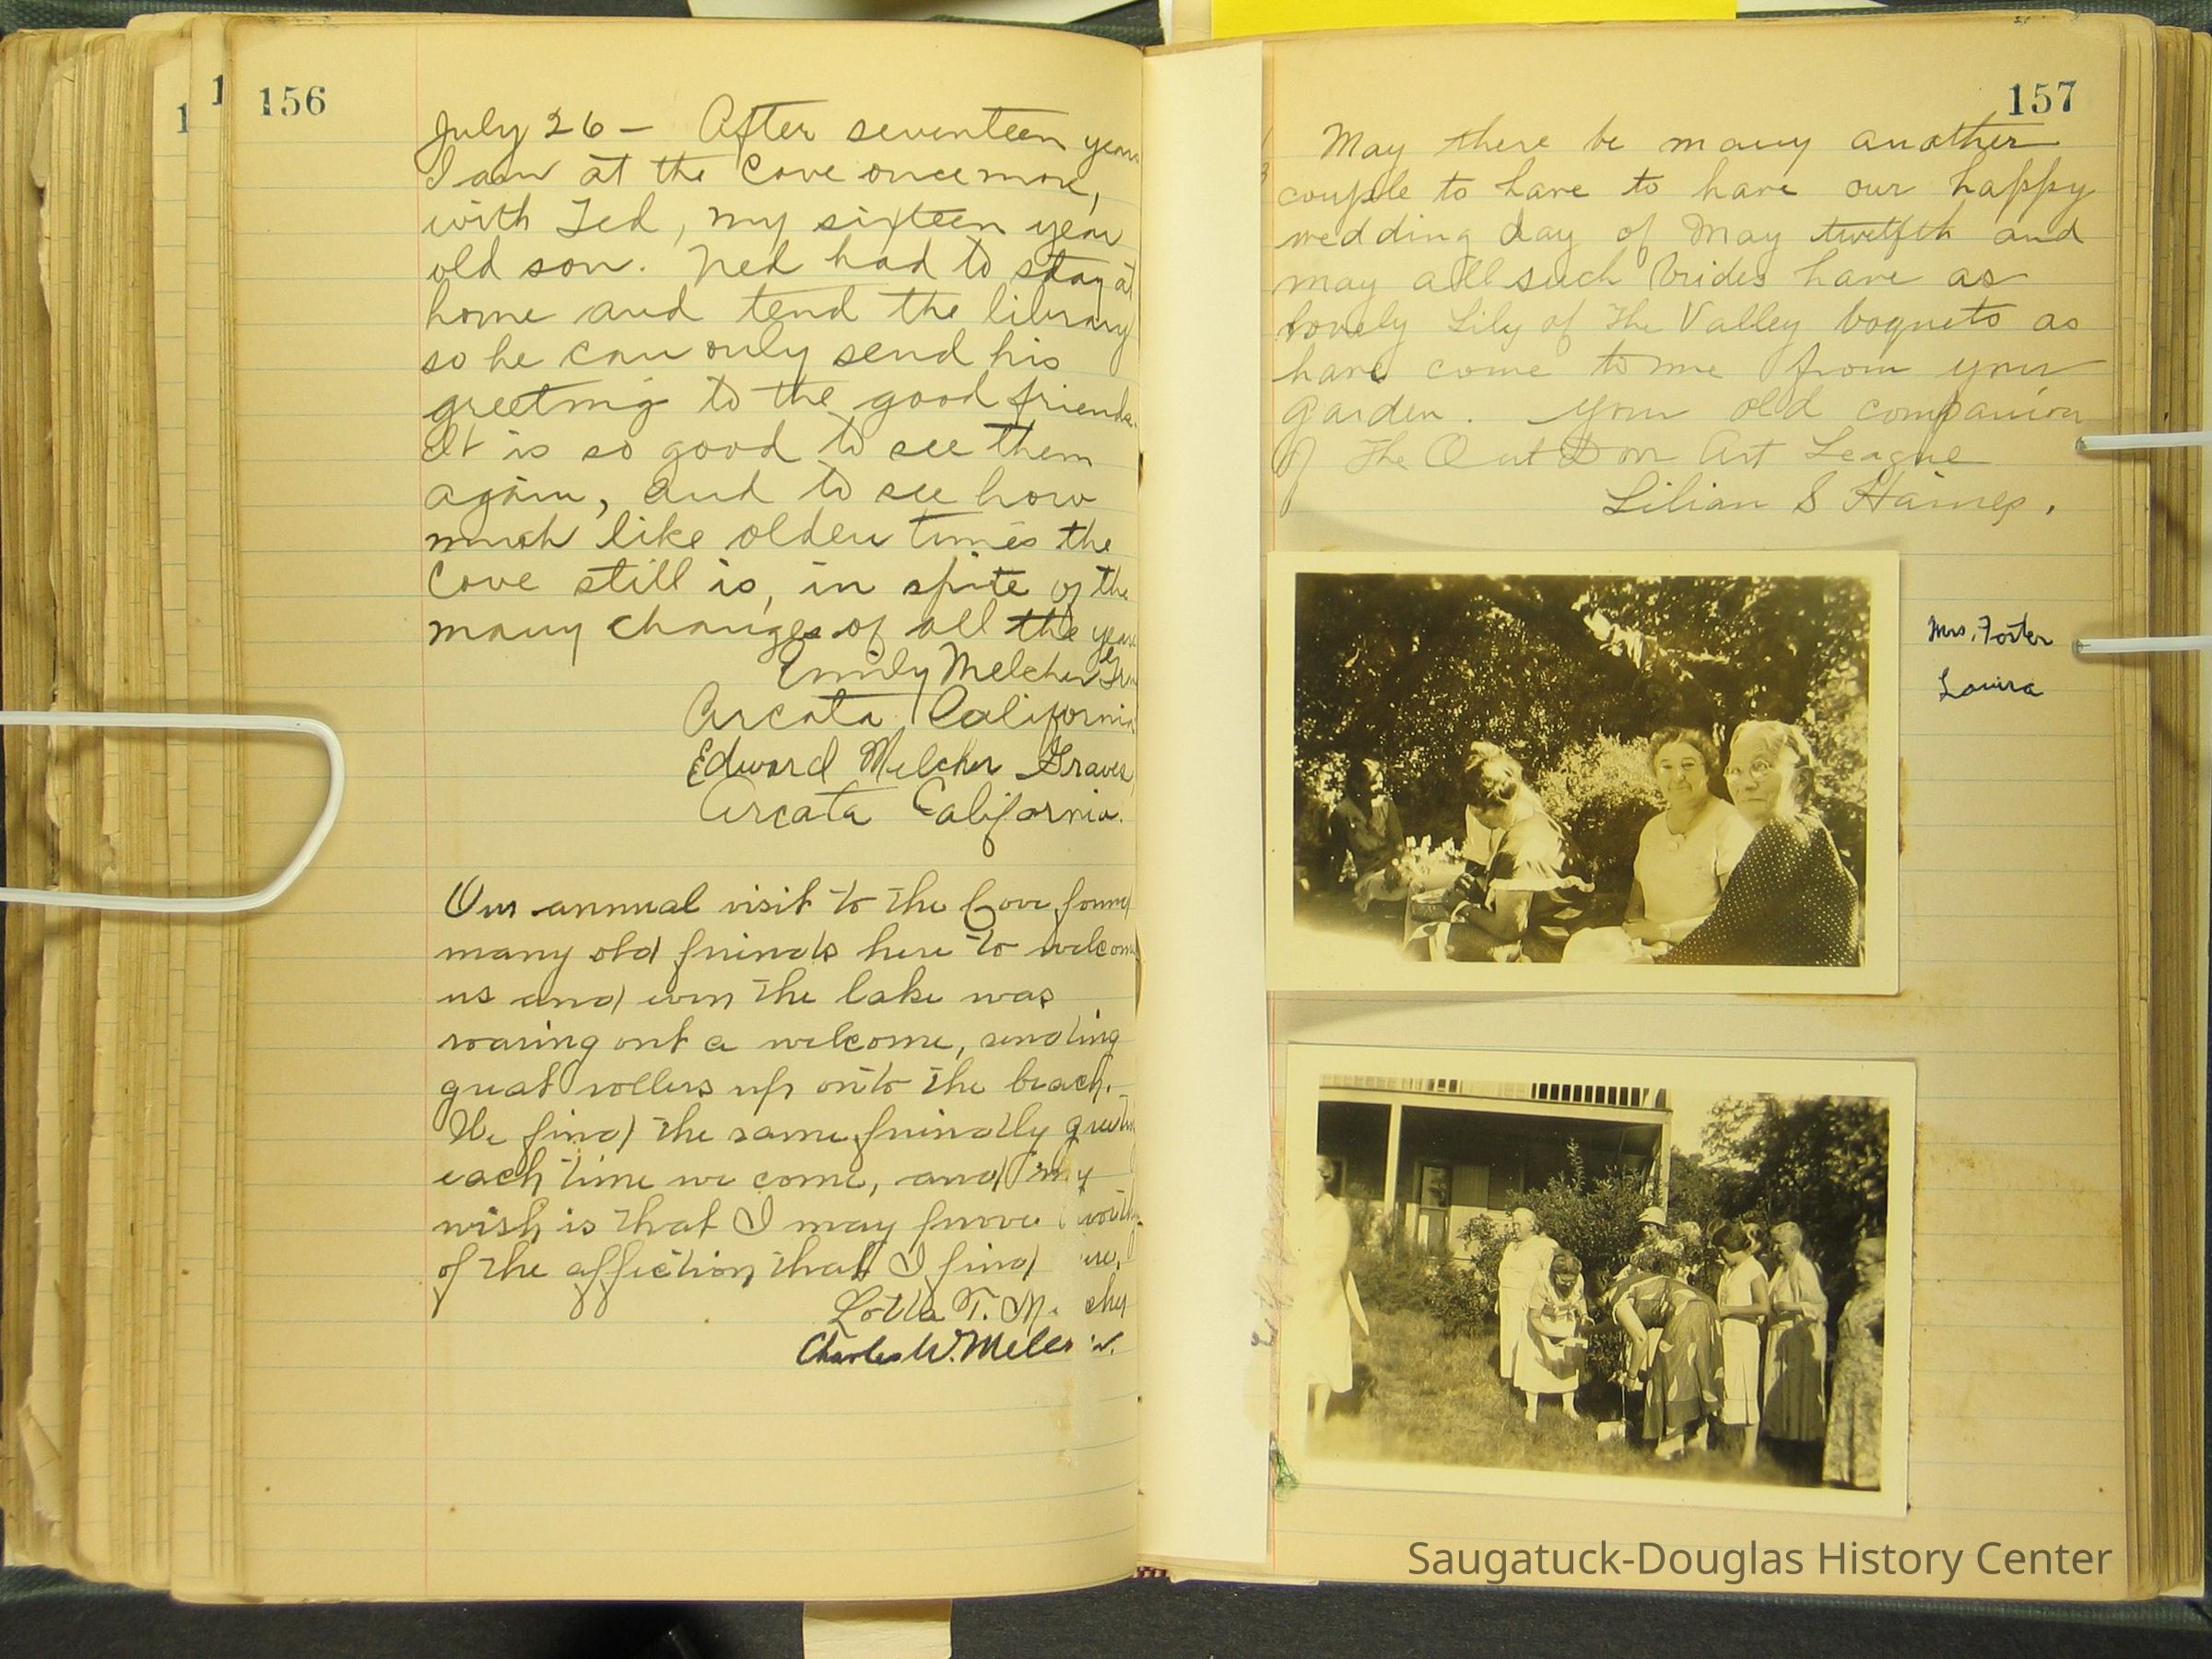 156
July 26 – After seventeen years
I am at the Cove once more,
with Ted, my sixteen year
old son. Ned had to stay at
home and tend the library
so he can only send his
greeting to the good friends.
It is so good to see them
again, and to see how
much like olden times the
Cove still is, in spite of the
many changes of all the years
Emily Melcher
Arcata California
Edward Melcher Graves
Arcata California.
Our annual visit to the Cove found
many old friends here to welcome
us and even the lake was
roaring out a welcome, sending
great rollers up onto the beach.
We find the same friendly
each time we come, and my
wish is that I may prove
of the affection that I find
Lotta T.
Charles W.
157
May there be many another
couple to have to have our happy
wedding day of May twelfth and
may all such brides have as
lovely Lily of The Valley boquets as
have come to me from your
garden. Your old companion
of The Out Door Art League
Lilian S Haines.
Mrs. Foster
Louisa
Saugatuck-Douglas History Center